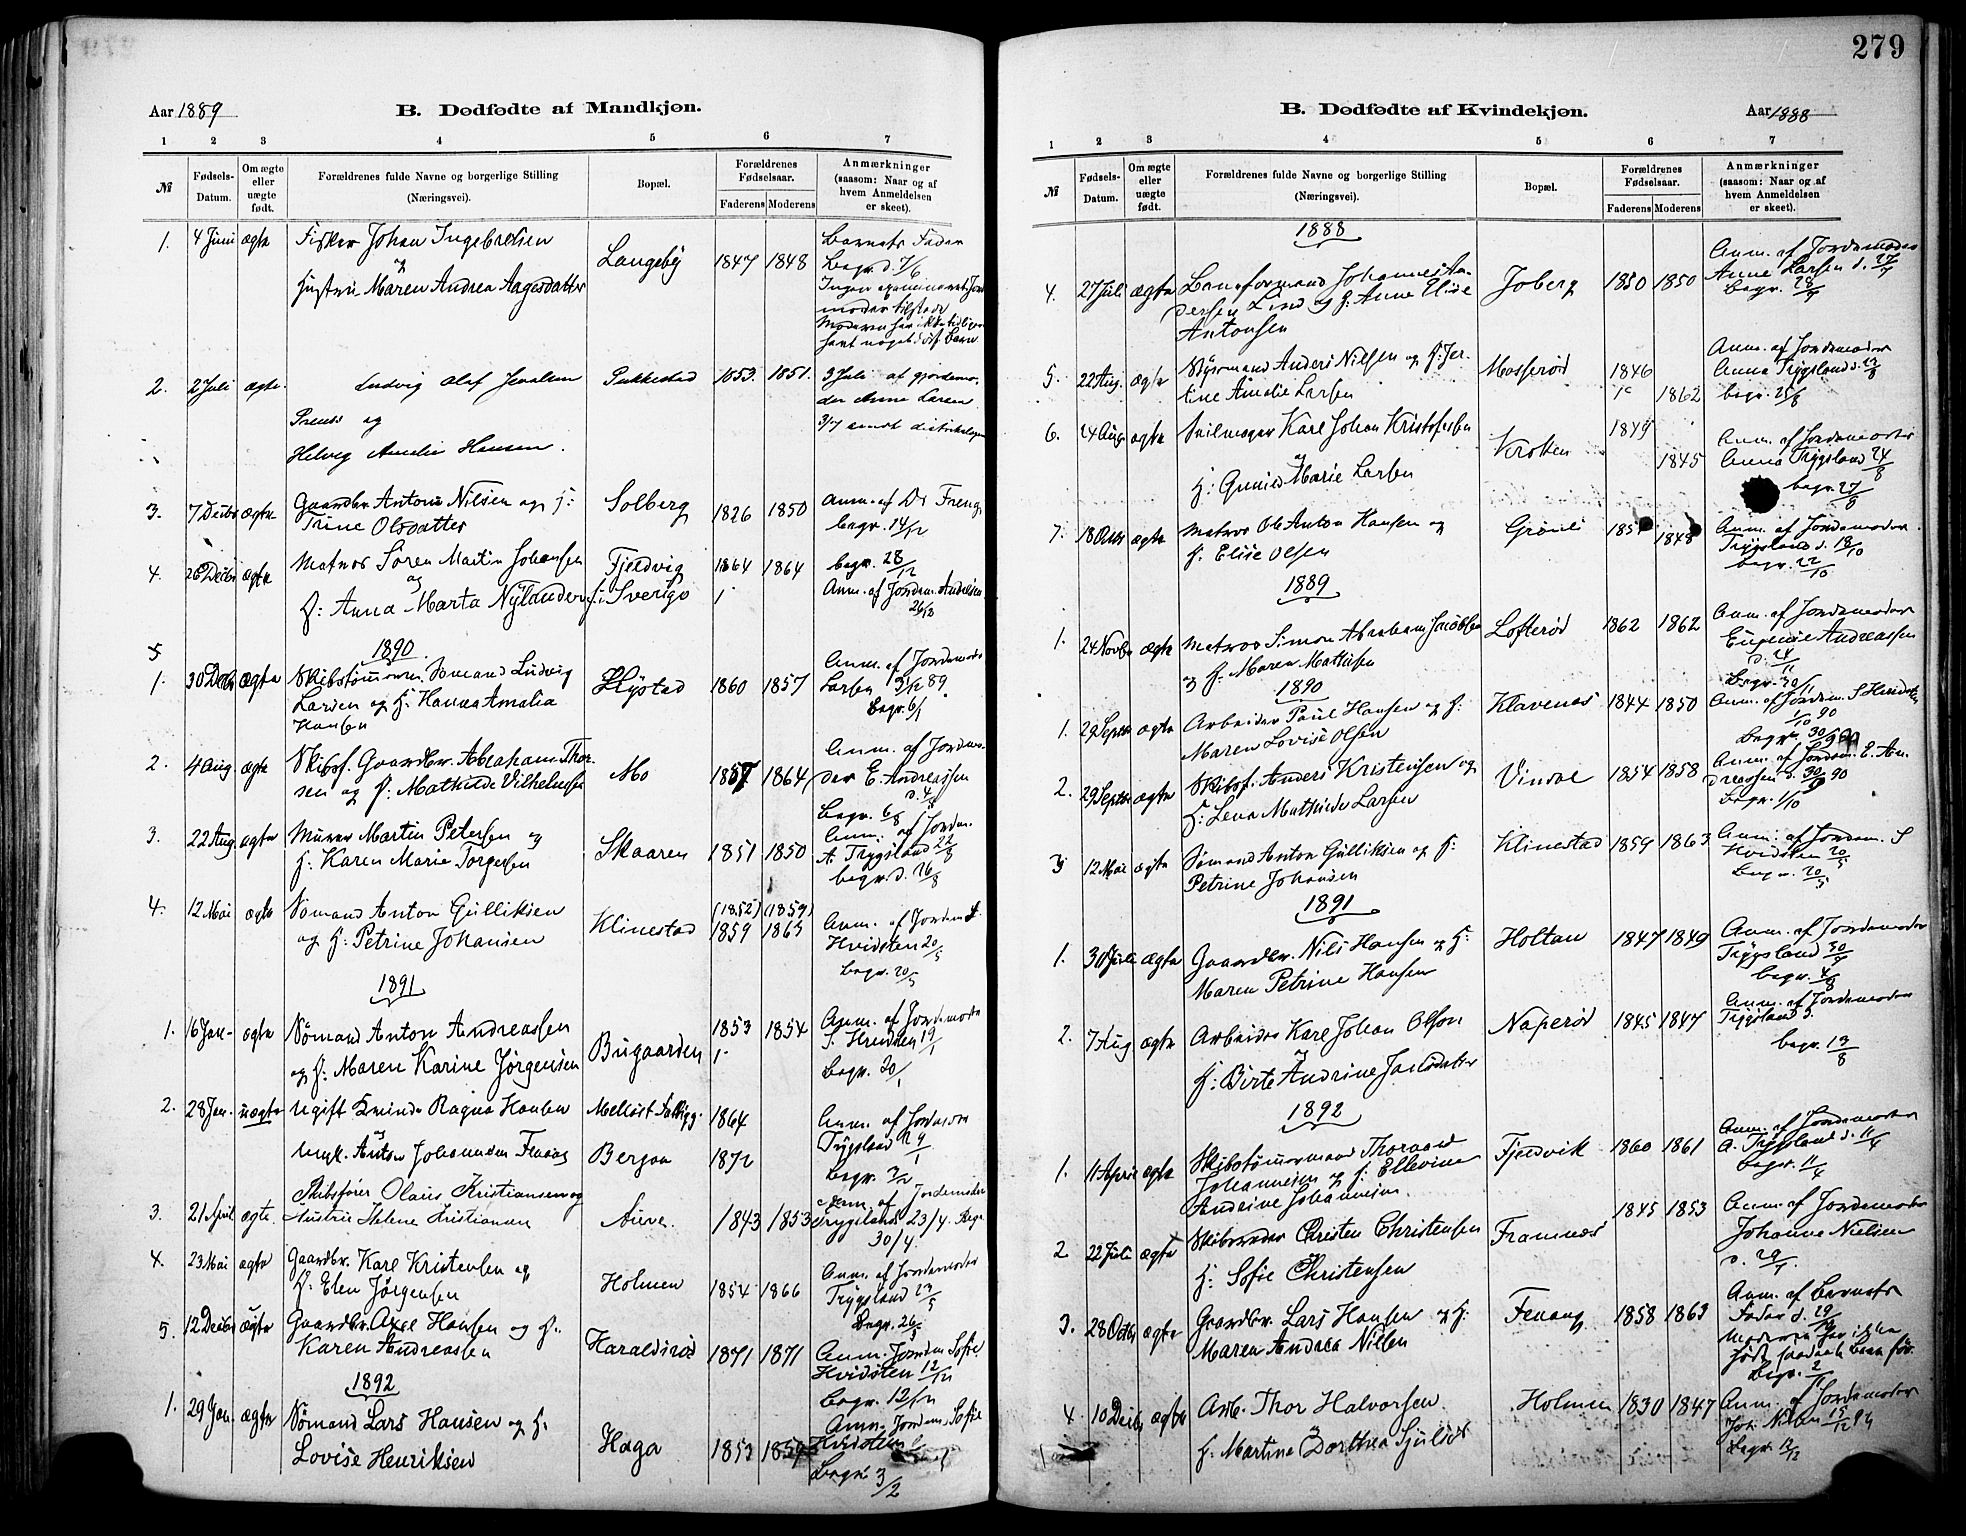 279
Aar 1889
B. Dødfødte af Mandkjøn.
1 2 3 4 5 6 7
№ Fødsels-Datum. Om ægte eller uægte født. Forældrenes fulde Navne og borgerlige Stilling (Næringsvei). Bopæl. Forældrenes Fødselsaar. Faderens Moderens Anmærkninger (saasom: Naar og af hvem Anmeldelsen er skeet).
1. 4 Juni ægte Fisker Johan Ingebretsen Langeby 1847 1848 Barnets Fader
og begr. d. 7/6
Hustru Maren Andrea Aagesdatter Ingen examineret Jord
moder tilstede
2. 2 Juli ægte. Ludvig Olaf Jensen Pukkestad 1853. 1851. 3 Juli af gjordemo-
og der Anne Larsen
Helvig Amalie Hansen. 3/7
3. 7 Decbr ægte Gaardbr. Anton Nilsen og H: Solberg 1826 1850 Anm. af Dr
Trine Olsdatter begr. 14/12
4. 26 Decbr ægte Matros Søren Martin Johansen Fjeldvig 1864 1864 begr. 28/12
og Anm. af Jordem. Andresen
H: Anna Marta Nylander f. i Sverige 26/12
5
1890
1. 30 Decbr ægte Skibstømmerm. Sømand Ludvig Hystad 1860 1857 Anm. af Jordemoder
Larsen og H. Hanna Amalia Larsen 31/12 89
Hansen Begr. 6/1
2. 4 Aug. ægte Skibsf. Gaardbr. Abraham Thor- Mo 1857 1864 Anm. af Jordemo-
sen og H. Mathilde Vilhelmsen der E. Andreassen
Begr. 6/8
3. 22 Aug ægte Murer Martin Petersen og Skaaren 1851 1850 Anm. af Jordem.
H. Karen Marie Torgersen A. Trygsland 22/8
begr. d. 26/8
4. 12 Mai ægte Sømand Anton Gulliksen Klinestad (1852) (1859)
og H: Petrine Johansen 1859 1863 Anm. af Jordem
Hvidsten 20/5
Begr. 20/5
1891
1. 16 Jan- ægte Sømand Anton Andreassen Bugaarden 1853 1854 Anm. af Jordemoder
og H. Maren Karine Jørgensen S. Hvidsten 19/1
Begr. 20/1
2. 28 Jan. uægte Ugift Kvinde Ragna Hansen 1864 Anm. af Jordemoder
Ungk. Anton Johannesen Bergan 1872 Trygsland 29/1
begr. 3/2
3. 21 April ægte. Skibsfører Olaus Kristiansen og Aueve. 1843 1853 Anm. af Jordemoder
Hustru Helene Kristiansen Trygsland 23/4. Begr
30/4.
4. 23 Mai ægte Gaardbr. Karl Kristensen og Holmen 1854 1866 Anm. af Jordemoder
H. Elen Jørgensen Trygsland 23/5
Begr. 26/5
5. 12 Decbr ægte Gaardbr. Axel Hansen og H. Haraldsrød 1871 1871 Anm. Jordem Sofie
Karen Andreassen Hvidsten 12/12
begr. 12/12
1892
1. 29 Jan. ægte Sømand Lars Hansen og H. Haga 1853 1859 Anm. Jordem. Sofie
Lovise Henriksen Hvidsten
Begr. 3/2
B. Dødfødte af Kvindekjøn.
Aar 1888
1 2 3 4 5 6 7
№ Fødsels-Datum. Om ægte eller uægte født. Forældrenes fulde Navne og borgerlige Stilling (Næringsvei). Bopæl. Forældrenes Fødselsaar. Faderens Moderens Anmærkninger (saasom: Naar og af hvem Anmeldelsen er skeet).
1888
4. 27 Juli ægte Baneformand Johannes An- Joberg 1850 1850 Anm. af Jordemoder
dersen Lind og H. Anne Elise Anne Larsen d. 27/7
Antonsen Begr. 28/7
5. 22 Aug. ægte Styrmand Anders Nilsen og H: Jer- Mosserød 1846 1862 Anm. af Jordemoder
tine Amalie Larsen Anna Trygsland d. 23/8
begr. 25/8
6. 24 Aug ægte Seilmager Karl Johan Kristofersen Krokken 1849 1845 Anm. af Jordemoder
og Anna Trygsland 24/8
H: Marie Larsen begr. 27/8
7. 18 Octbr ægte Matros Ole Anton Hansen og Grønli 1848 Anm. af Jordemoder
H. Elise Olsen Trygsland d. 18/10
begr. 22/10
1889
1. 24 Novbr ægte Matros Simon Abraham Jacobsen Lofterød 1862 1862 Anm. af Jordemoder
og H. Maren Mathisen Eugenie Andreassen
Begr. 30/11
1890
1. 29 Septbr ægte Arbeider Paul Hansen og H: Klavenes 1844 1850 Anm. af Jordem. S Hvidsten
Maren Lovise Olsen 1/10 90
2. 29 Septbr ægte Skibsf. Anders Kristensen og Vindal 1854 1858 Anm. af Jordem. E. An-
H: Lena Mathilde Larsen dreassen d. 30/9 90
Begr. 1/10
3 12 Mai ægte Sømand Anton Gulliksen og H: Klinestad 1859 1863 Anm. af Jordem. S
Petrine Johansen Hvidsten 20/5
Begr. 20/5
1891
1. 30 Juli ægte Gaardbr. Nils Hansen og H: Holtan 1847 1849 Anm. af Jordemoder
Maren Petrine Hansen Trygsland 30/7
begr. 4/8
2. 7 Aug ægte Arbeider Karl Johan Olsen Naperød 1845 1847 Anm. af Jordemoder
og Trygsland d.
H: Birte Andrine Jacobsdatter begr. 13/8
1892
1. 11 April ægte Skibstømmermand Thorvald Fjeldvik 1860 1861 Anm. af Jordemoder
Johannesen og H. Ellevine A. Trygsland d. 11/4
Andrine Johannesen. begr. 11/4
2 22 Juli ægte Skibsreder Christen Christensen Framnæs 1845 1853 Anm. af Jordemoder
H: Sofie Christensen Johanne Nielsen
3. 28 Octbr ægte Gaardbr. Lars Hansen og H: Fevang 1858 1863 Anm. af Barnets
Maren Andrea Nilsen Fader d. 29/10
Moderen har ikke
født saadant Barn før.
4 10 Decbr ægte Arb. Thor Halvorsen. Holmen 1830 1847 Anm. af Jordemoder
H. Martine Dorthea Joh. Nilsen
Begr. 12/12